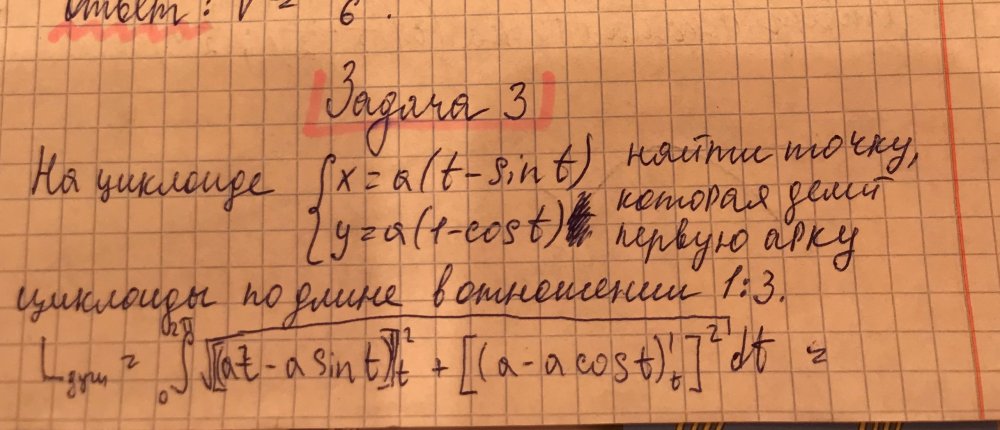 Ответ: V = 6.
Задача 3
На циклоиде { x = a(t - sin t) найти точку,
y = a(1 - cos t) которая делит
первую арку
циклоиды по длине в отношении 1:3.
L дуги = ∫₀^2π √[(at - a sin t)]'ₜ² + [(a - a cos t)'ₜ]² dt =